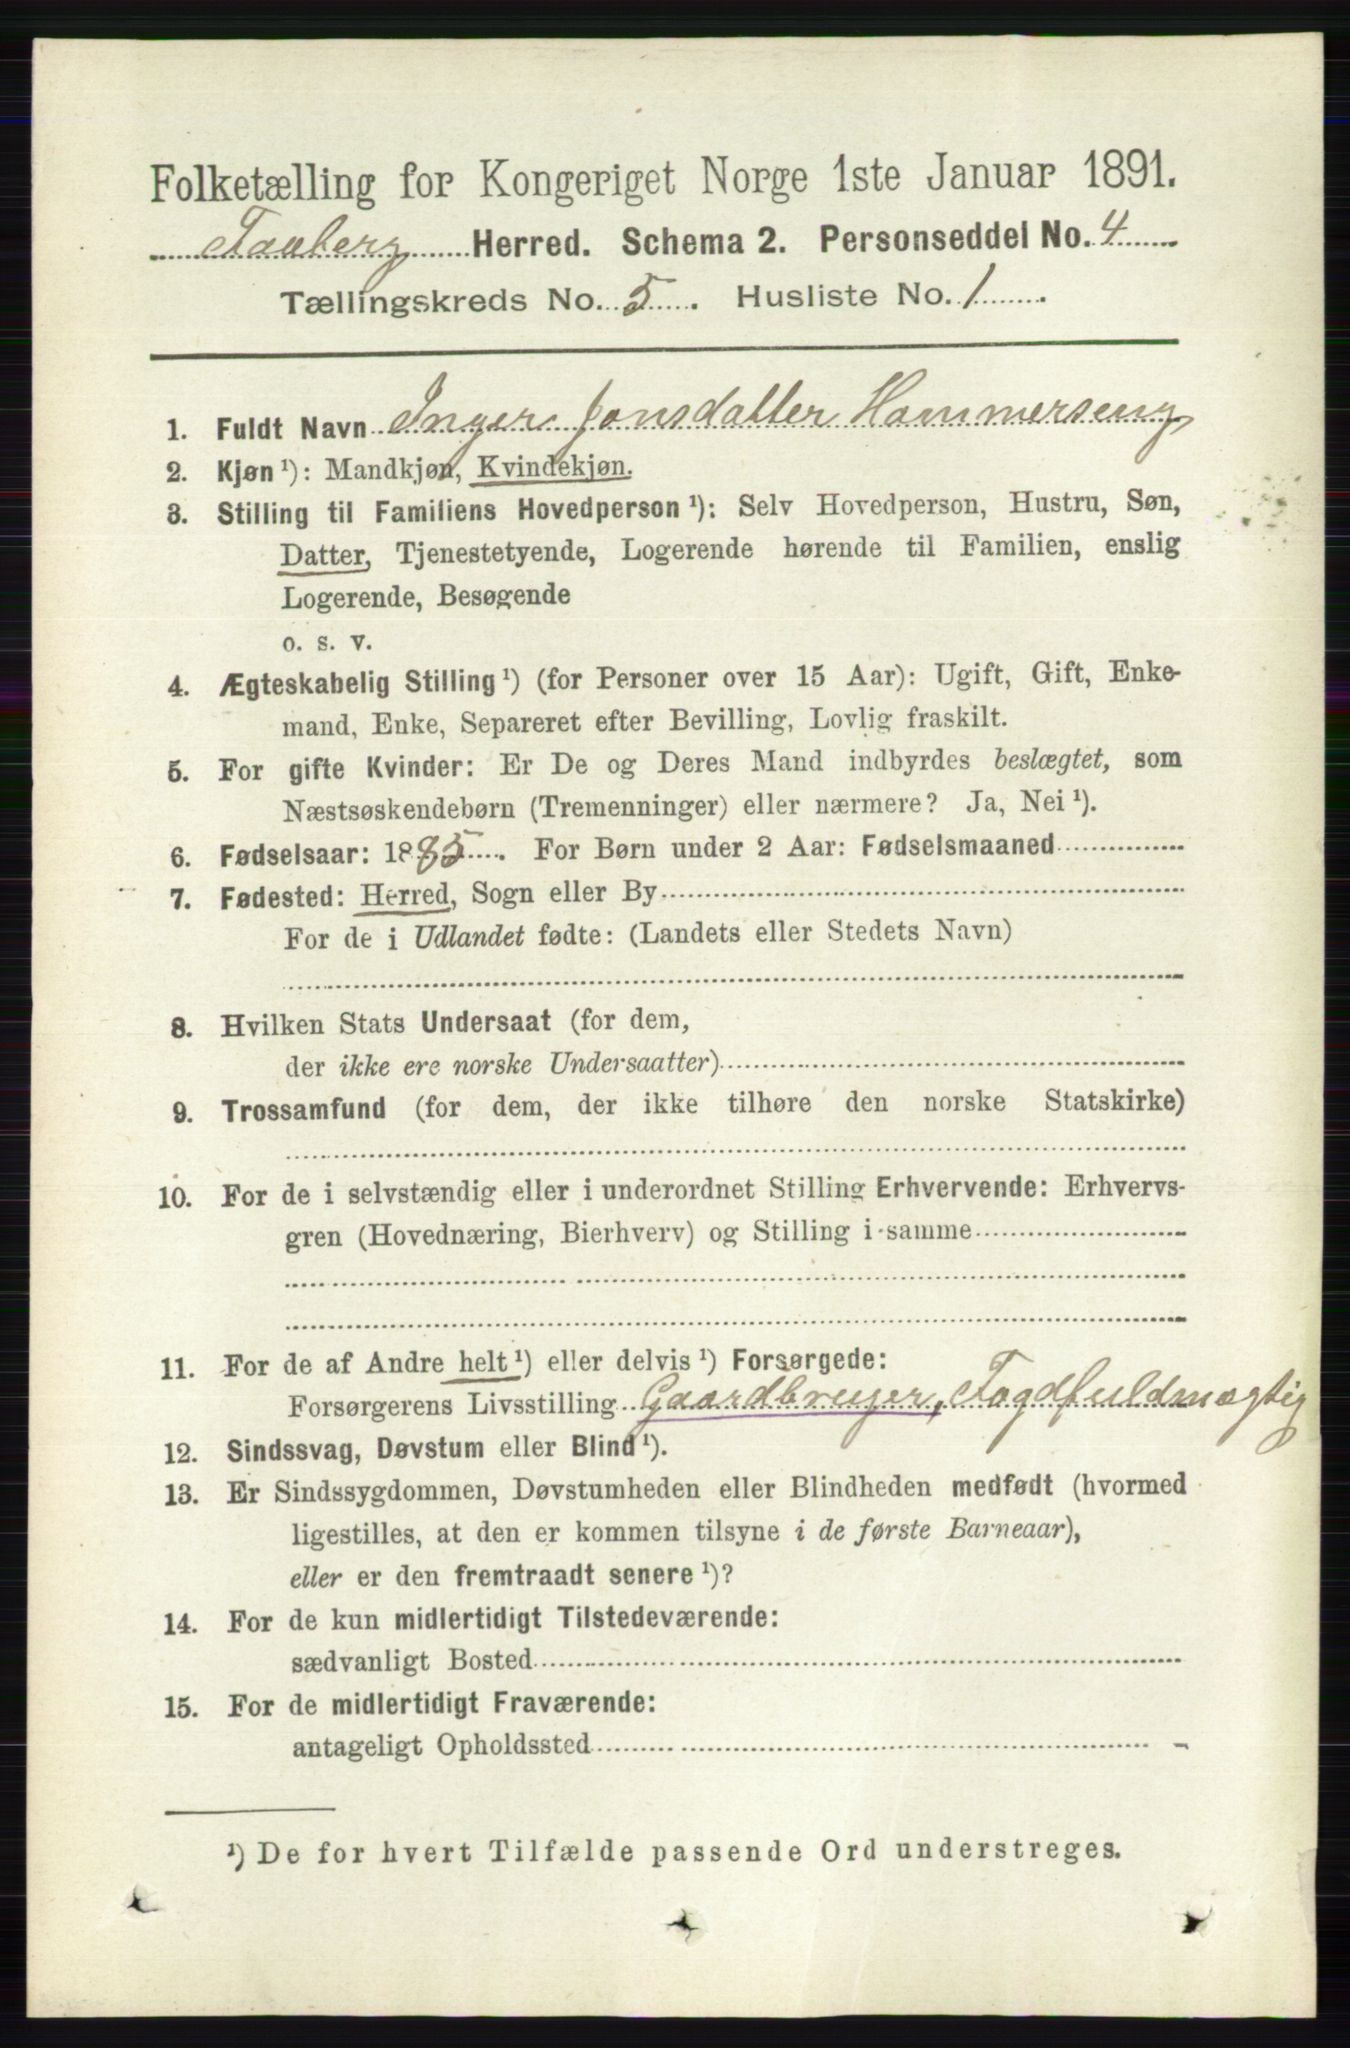 Folketælling for Kongeriget Norge 1ste Januar 1891.
Faaberg Herred. Schema 2. Personseddel No. 4
Tællingskreds No. 5. Husliste No. 1
1. Fuldt Navn Inger Jonsdatter Hammerseng
2. Kjøn¹): Mandkjøn, Kvindekjøn.
3. Stilling til Familiens Hovedperson¹): Selv Hovedperson, Hustru, Søn,
Datter, Tjenestetyende, Logerende hørende til Familien, enslig
Logerende, Besøgende
o. s. v.
4. Ægteskabelig Stilling¹) (for Personer over 15 Aar): Ugift, Gift, Enke-
mand, Enke, Separeret efter Bevilling, Lovlig fraskilt.
5. For gifte Kvinder: Er De og Deres Mand indbyrdes beslægtet, som
Næstsøskendebørn (Tremenninger) eller nærmere? Ja, Nei¹).
6. Fødselsaar: 1885. For Børn under 2 Aar: Fødselsmaaned
7. Fødested: Herred, Sogn eller By
For de i Udlandet fødte: (Landets eller Stedets Navn)
8. Hvilken Stats Undersaat (for dem,
der ikke ere norske Undersaatter)
9. Trossamfund (for dem, der ikke tilhøre den norske Statskirke)
10. For de i selvstændig eller i underordnet Stilling Erhvervende: Erhvervs-
gren (Hovednæring, Bierhverv) og Stilling i samme
11. For de af Andre helt¹) eller delvis¹) Forsørgede:
Forsørgerens Livsstilling Gaardbruger, Fogdfuldmægtig
12. Sindssvag, Døvstum eller Blind¹).
13. Er Sindssygdommen, Døvstumheden eller Blindheden medfødt (hvormed
ligestilles, at den er kommen tilsyne i de første Barneaar),
eller er den fremtraadt senere¹)?
14. For de kun midlertidigt Tilstedeværende:
sædvanligt Bosted
15. For de midlertidigt Fraværende:
antageligt Opholdssted
¹) De for hvert Tilfælde passende Ord understreges.